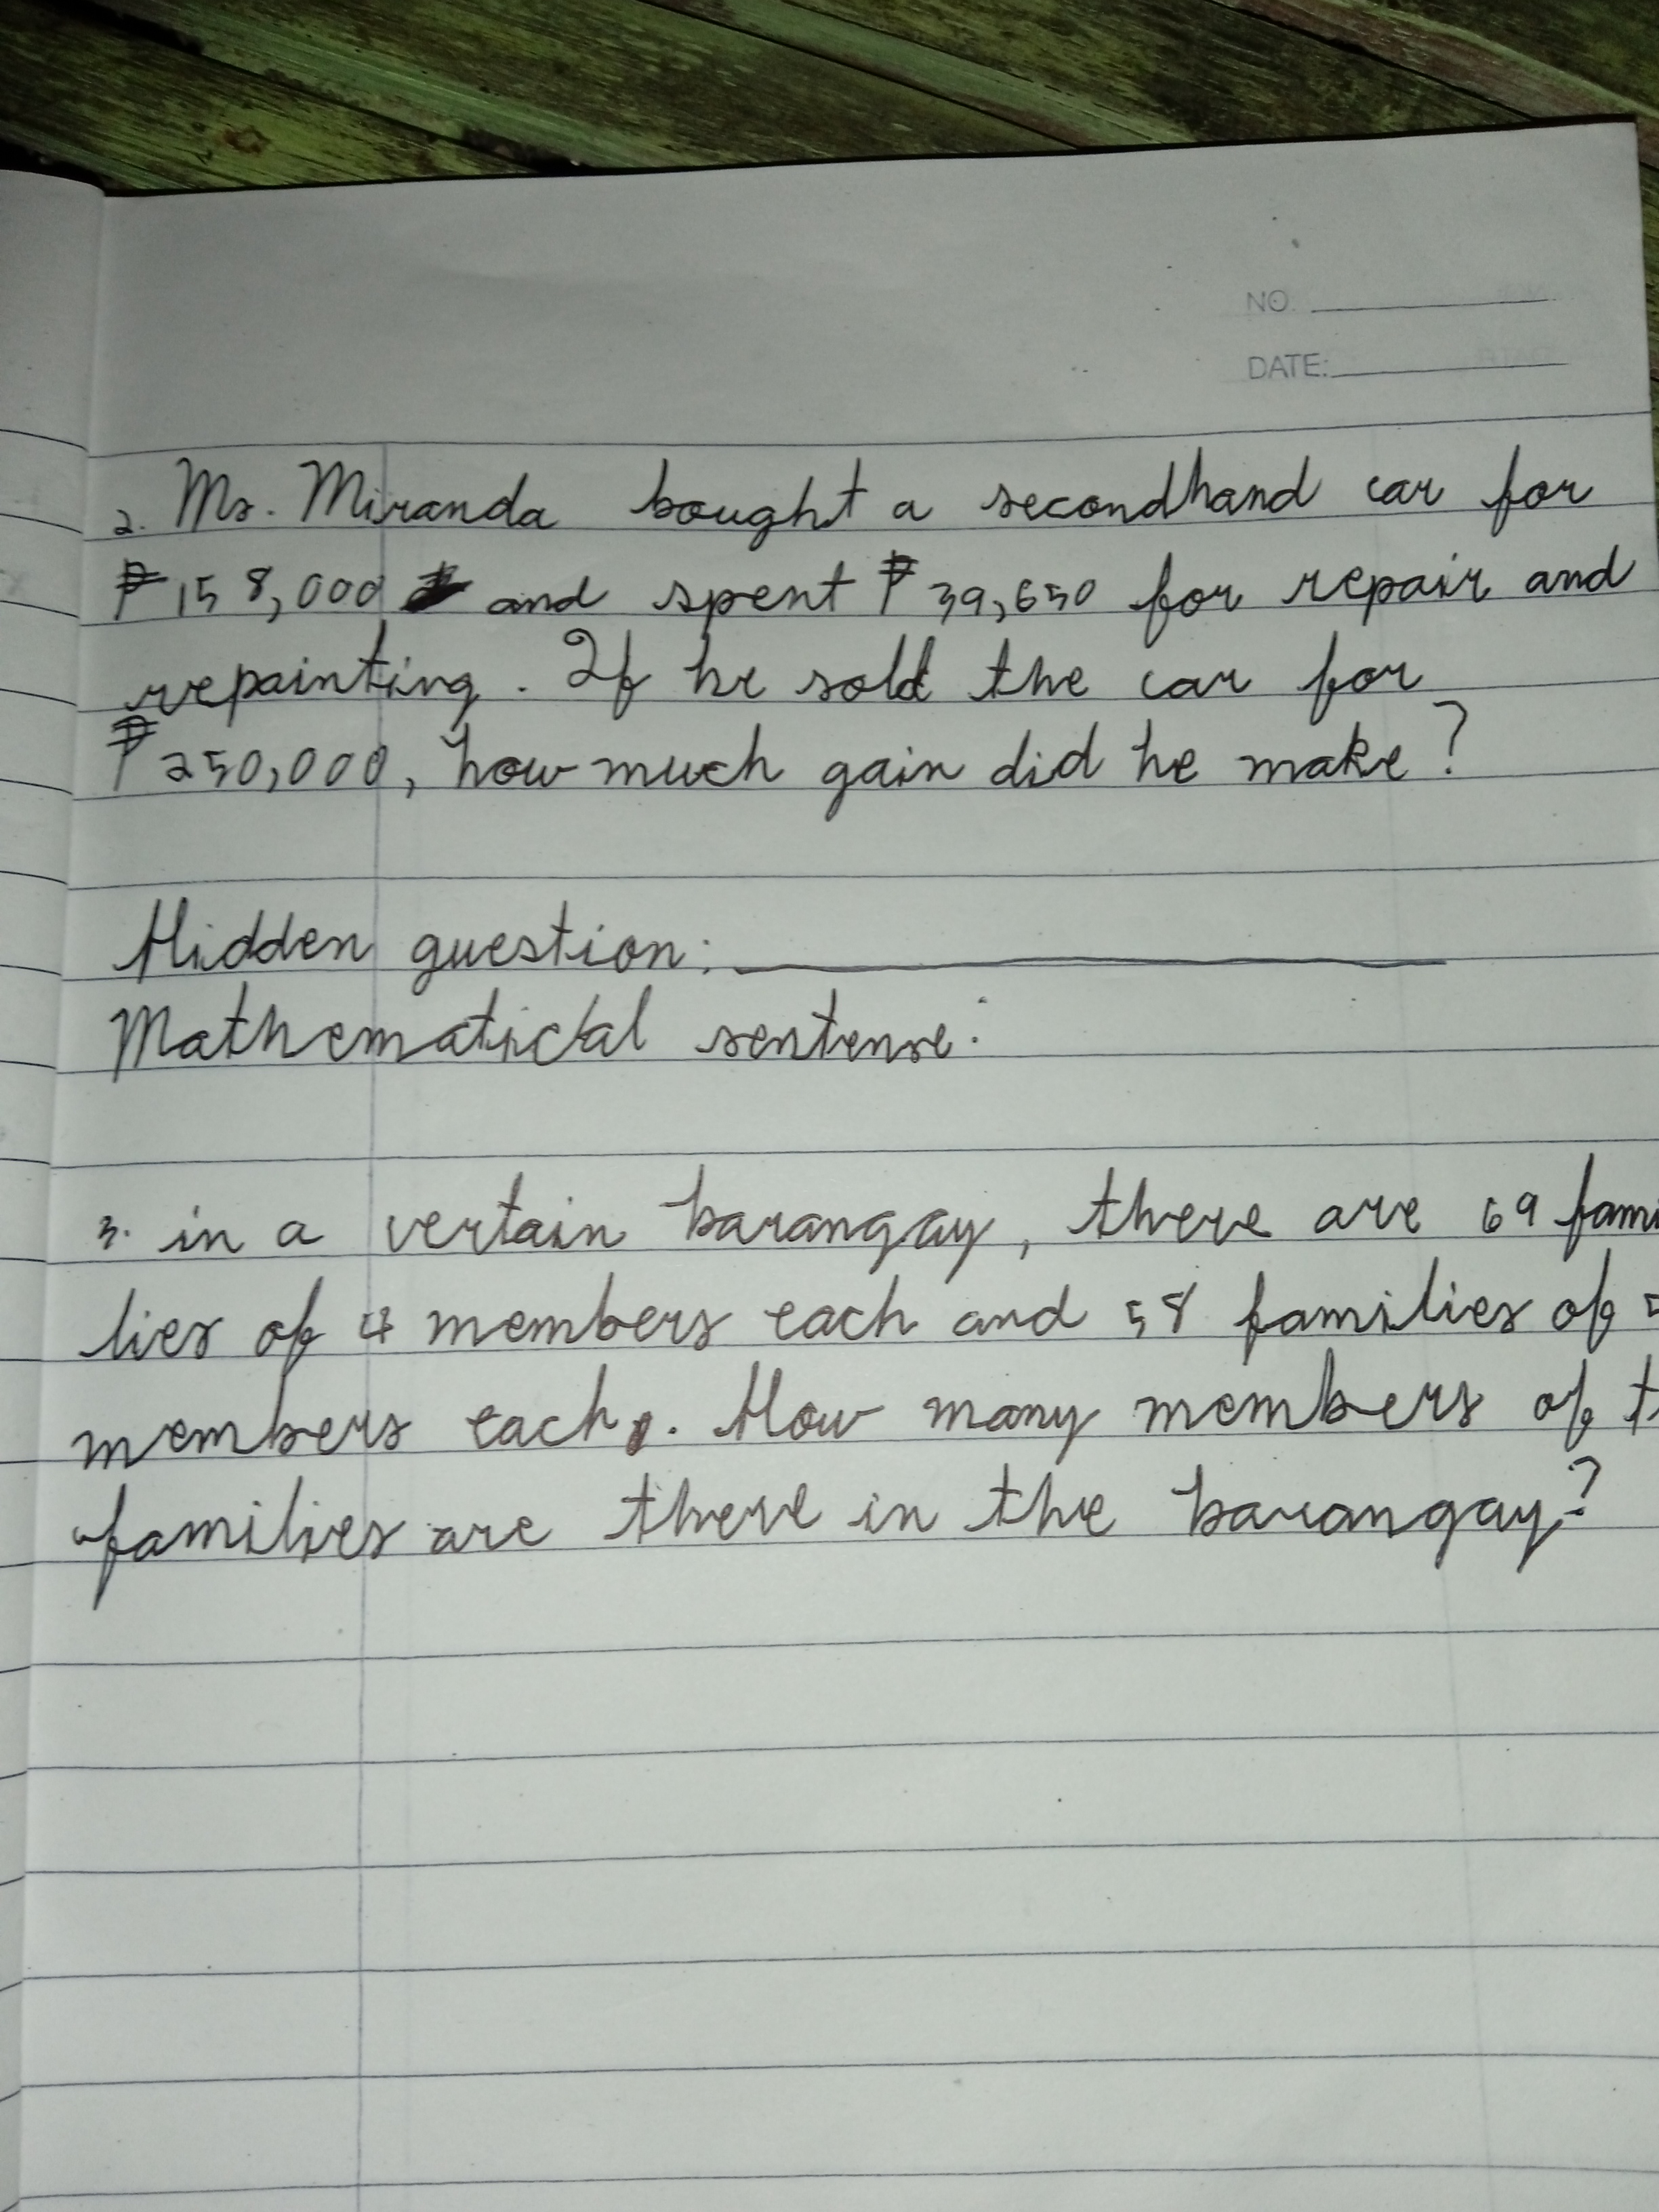 NO.
DATE:
2. Mr. Miranda bought a secondhand car for
₱158,000 and spent ₱39,650 for repair and
repainting. If he sold the car for
₱250,000, how much gain did he make?
Hidden question:
Mathematical sentense:
3. in a vertain barangay, there are 69 fami
lies of 4 members each and 58 families of 5
members each. How many members of t
families are there in the barangay?